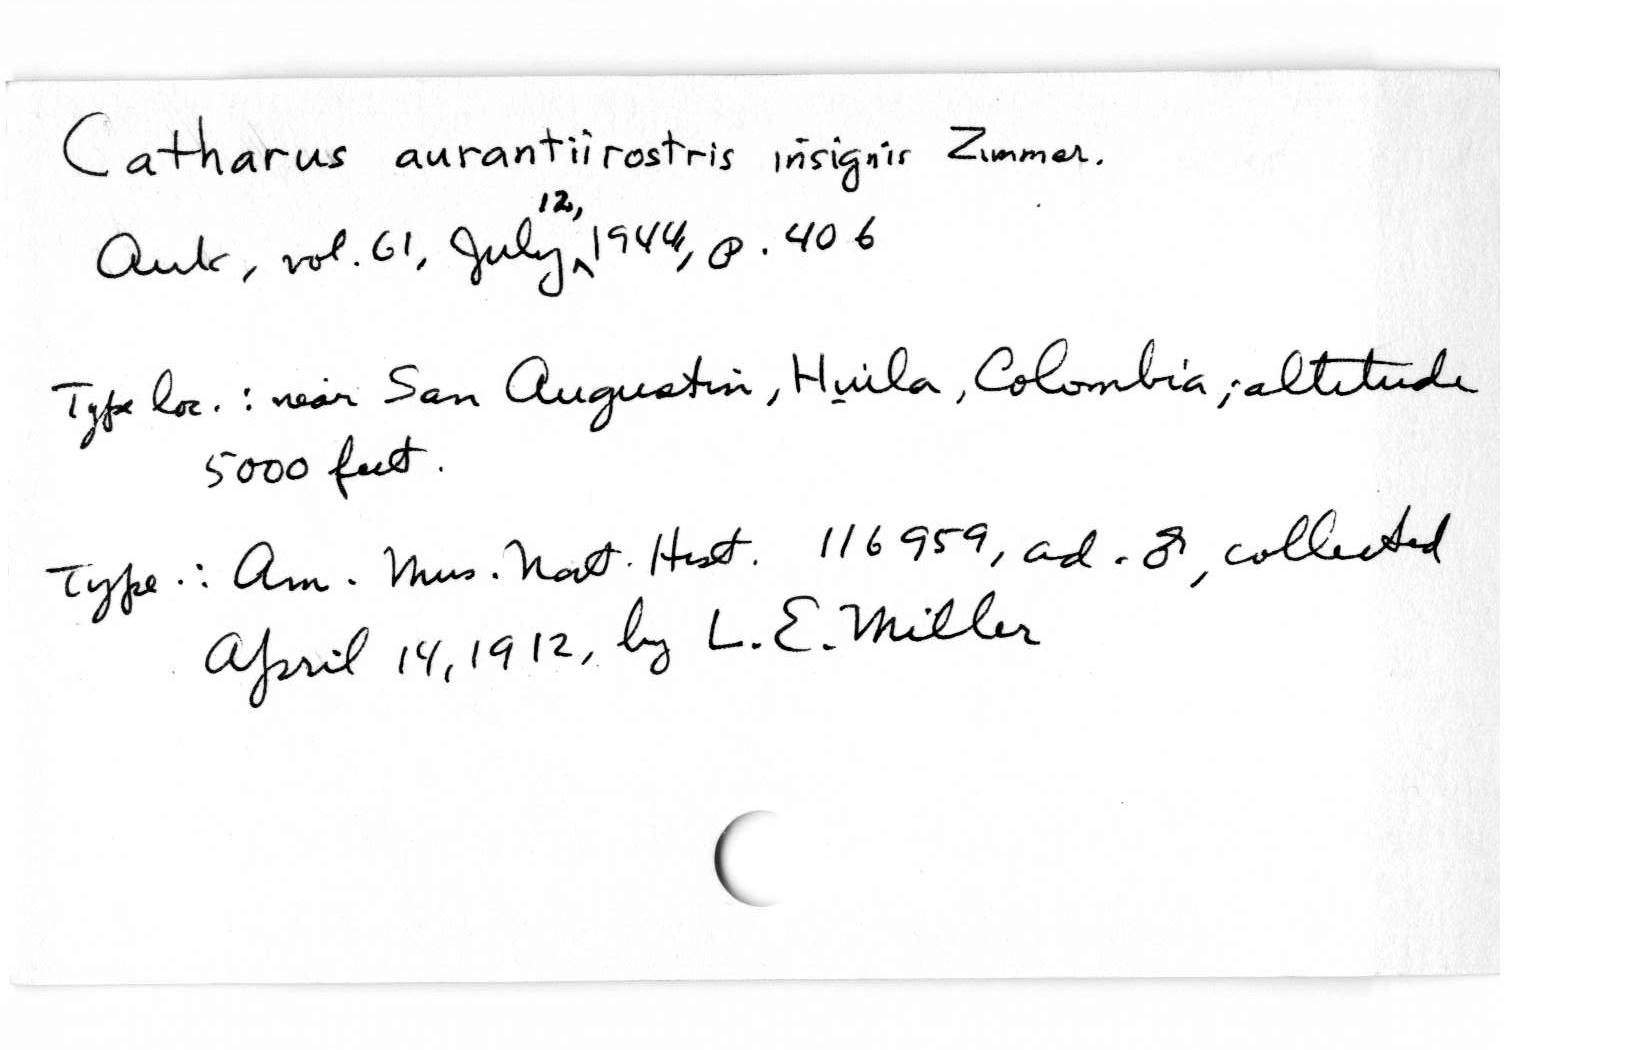 Catharus aurantiirostris insignis Zimmer.
Auk, vol. 61, July 12, 1944, p. 406
Type loc. : near San Augustin, Huila, Colombia, ; altitude
5000 feet.
Type. : Am. Mus. Nat. Hist. 116959, ad. ♂, collected
April 14, 1912, by L. E. Miller